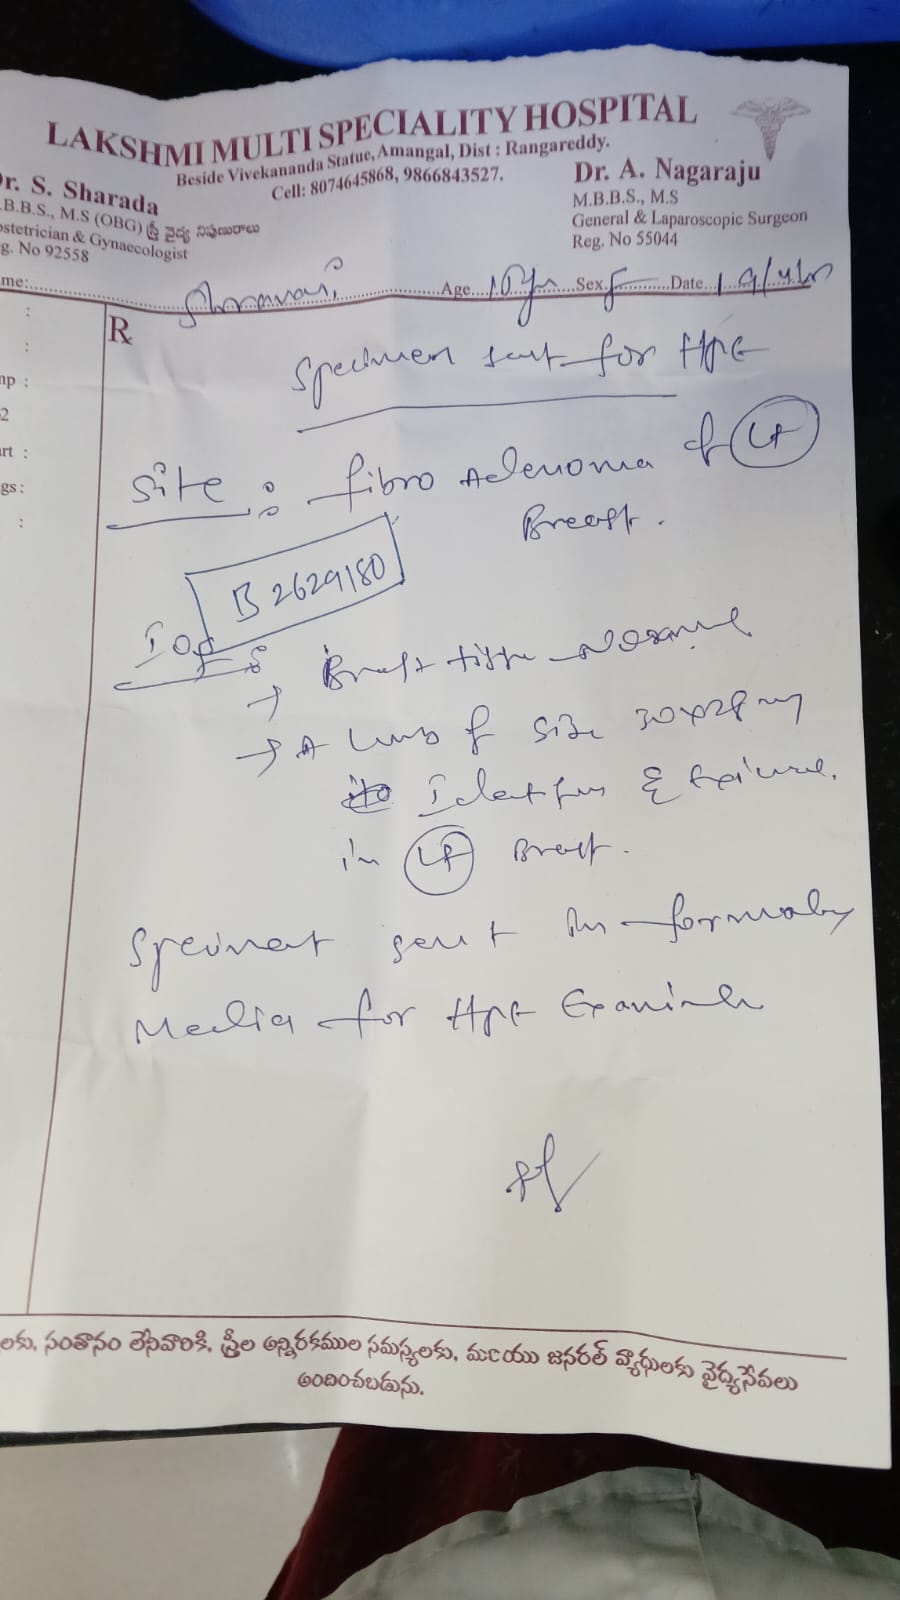 LAKSHMI MULTI SPECIALITY HOSPITAL
Beside Vivekananda Statue, Amangal, Dist : Rangareddy.
Cell: 8074645868, 9866843527.
Dr. S. Sharada
B.B.S., M.S (OBG) స్త్రీ వైద్య నిపుణురాలు
Obstetrician & Gynaecologist
g. No 92558
Dr. A. Nagaraju
M.B.B.S., M.S
General & Laparoscopic Surgeon
Reg. No 55044
me: Shravani Age Sex F Date
R
mp :
2
art :
gs :
Specimen sent for HPE
Site : fibro Adenoma of Lt
Breast.
B2629180
→ Breast tissue
→ A of size 30x28
in Lt Breast.
sent in
Media for HPE
లకు, సంతానం లేనివారికి, స్త్రీల అన్నిరకముల సమస్యలకు, మరియు జనరల్ వ్యాధులకు వైద్యసేవలు
అందించబడును.